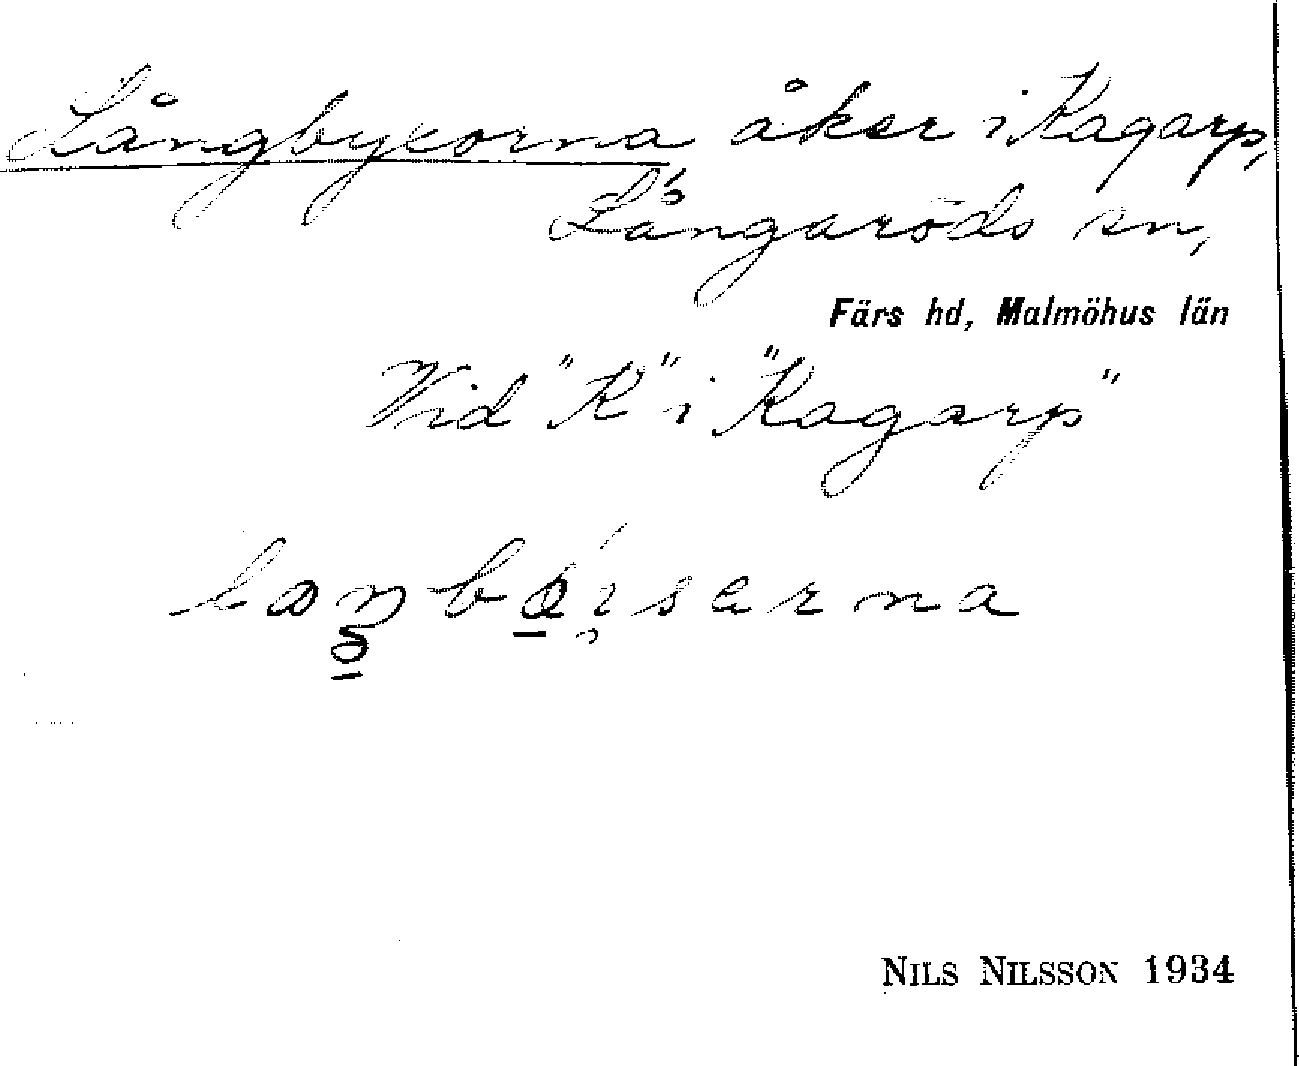 Långbyxorna åker i Kagarp,
Långaröds sn,
Färs hd, Malmöhus län
Vid "K" i "Kagarp"
NILS NILSSON 1934